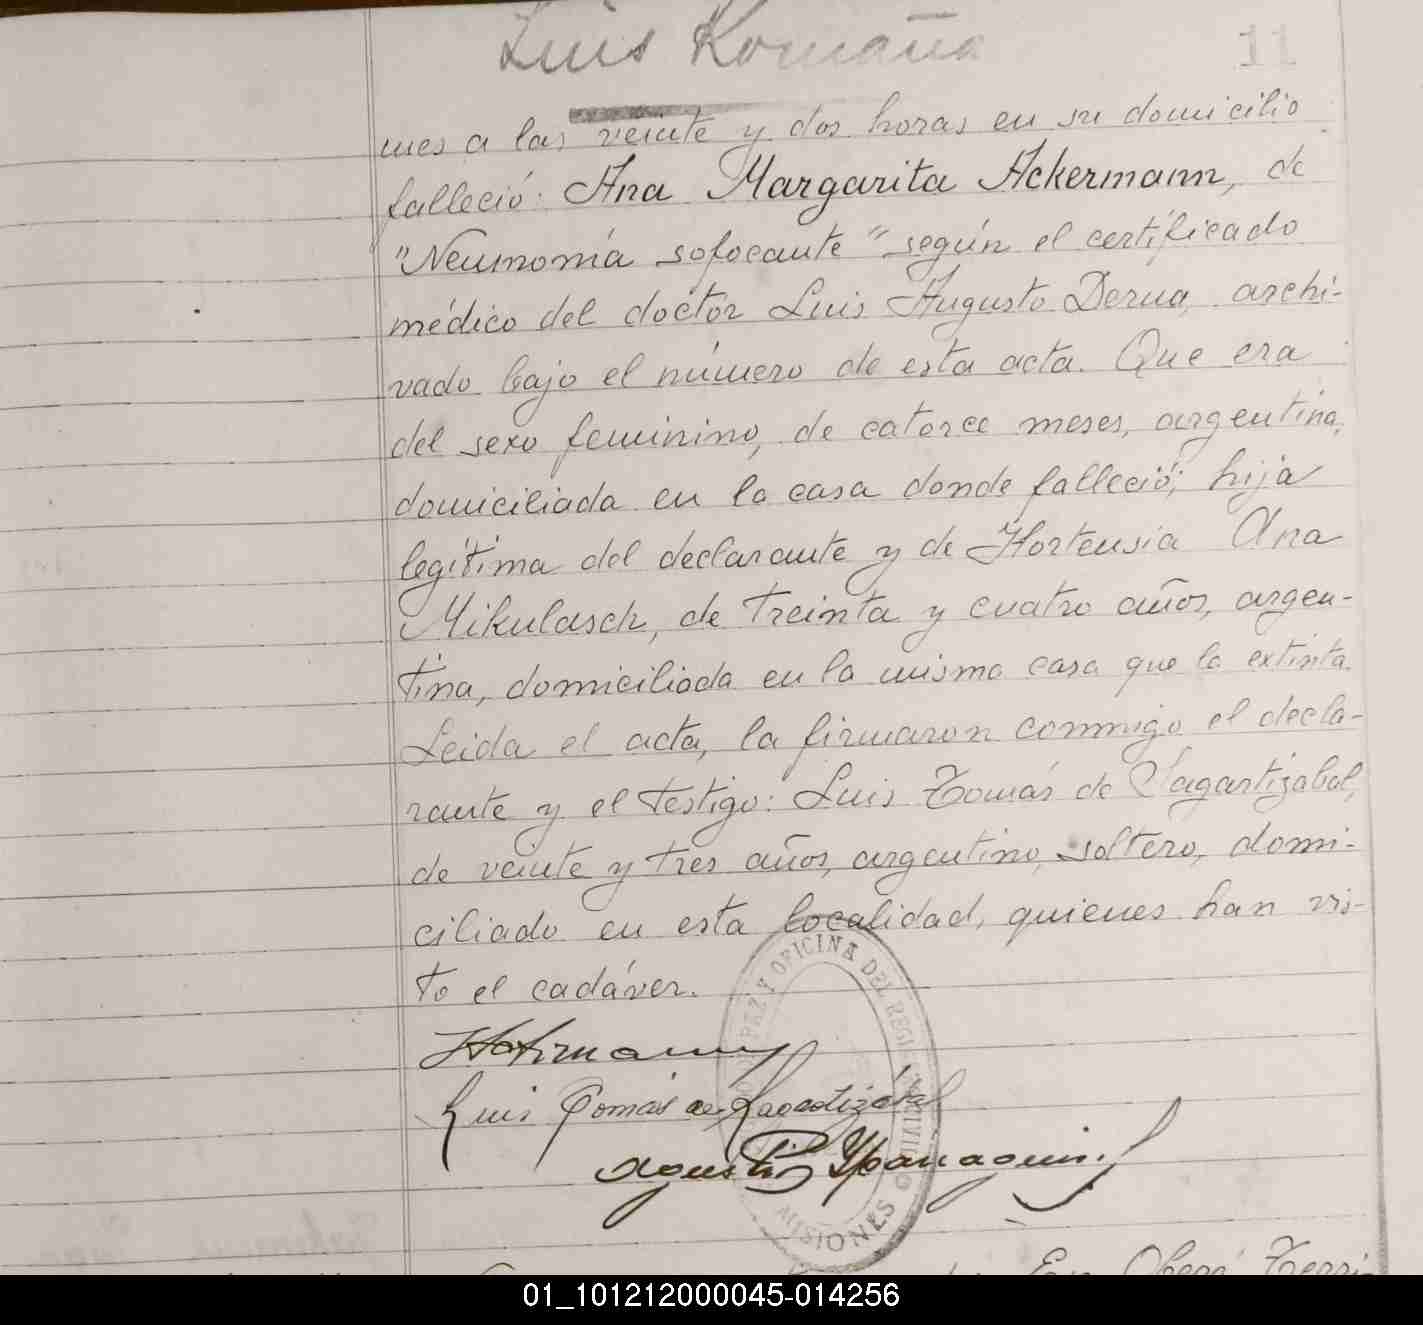 Luis Romaña
11
mes a las veinte y dos horas en su domicilio
falleció: Ana Margarita Ackermann, de
"Neumonía sofocante" según el certificado
médico del doctor Luis Augusto Derna, archi-
vado bajo el número de esta acta. Que era
del sexo feminino, de catorce meses, argentina,
domiciliada en la casa donde falleció; hija
legítima del declarante y de Hortensia Ana
Mikulasch, de treinta y cuatro años, argen-
tina, domiciliada en la misma casa que la extinta.
Leida el acta, la firmaron conmigo el decla-
rante y el testigo: Luis Tomás de Lagartizabal,
de veinte y tres años, argentino, soltero, domi-
ciliado en esta localidad, quienes han vis-
to el cadáver.
Luis Tomás de Lagartizábal
Agustín
PAZ Y OFICINA DEL REGI CIVIL
MISIONES
En Oberá Terri
01_101212000045-014256